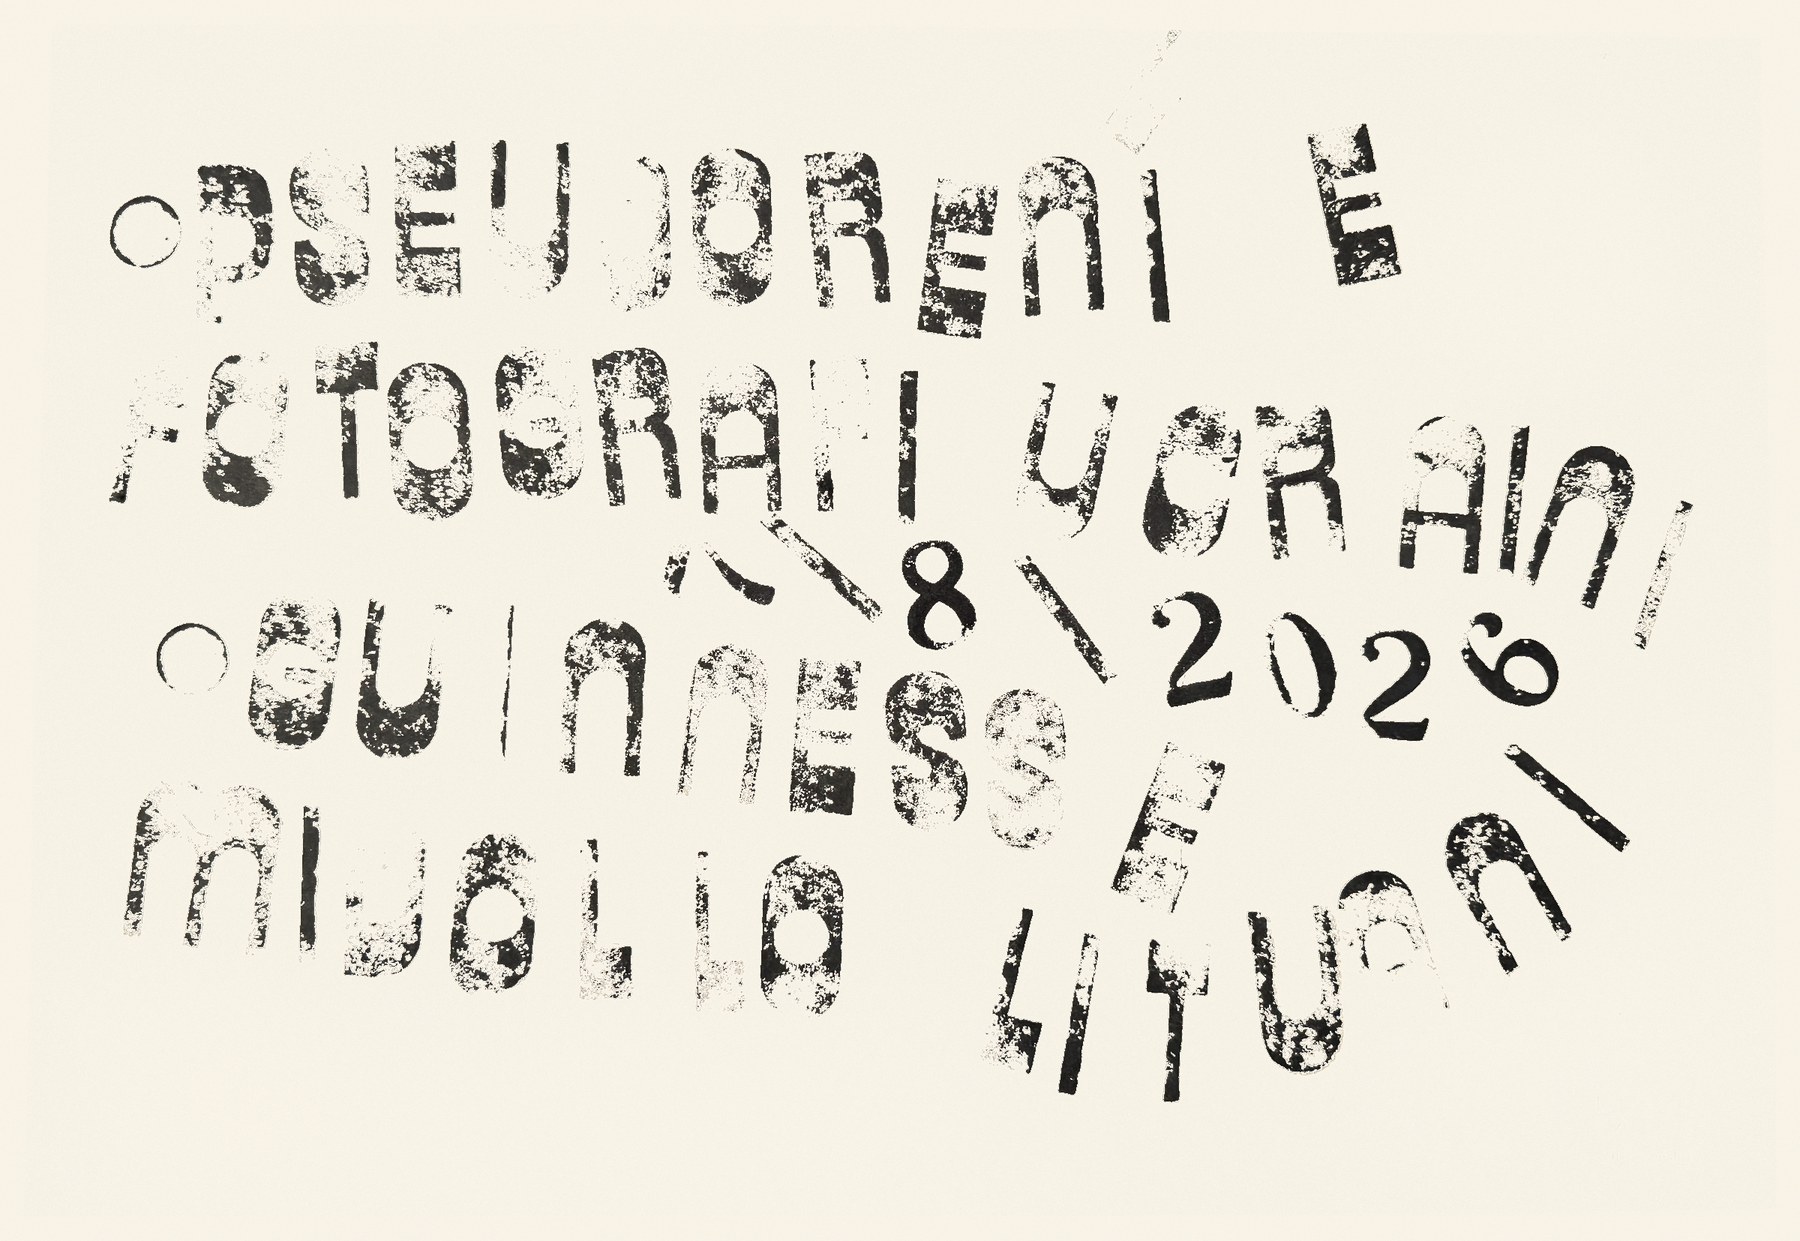 PSEUDORENI E
FOTOGRAFI UCRAINI
8 \ 2026
GUINNESS E
MIJOLLO LITUANI